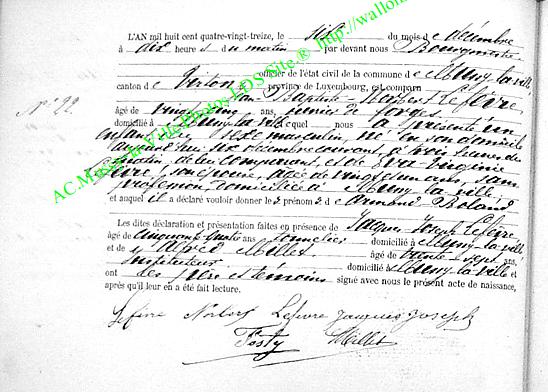 L'AN mil huit cent quatre-vingt-treize, le six du mois de décembre
à dix heures du matin par devant nous Bourgmestre
officier de l'état civil de la commune de Mussy-la-ville,
canton de Virton province de Luxembourg, est comparu
N° 22. Jean-Baptiste Norbert Lefèvre,
âgé de vingt cinq ans, ouvrier de forges
domicilié à Mussy-la-ville lequel nous a présenté un
enfant du sexe masculin, né en son domicile
aujourd'hui six décembre courant, à trois heures du
matin, de lui comparant, et de Virginie
son épouse, âgée de vingt un ans, sans
profession, domiciliée à Mussy la ville
et auquel il a déclaré vouloir donner les prénoms de Armand Roland
Les dites déclaration et présentation faites en présence de Jacques Joseph Lefèvre
âgé de cinquante quatre ans, domicilié à Mussy-la-ville
et de Millet, âgé de trente sept ans,
instituteur domicilié à Mussy-la-ville et
ont les père et témoins signé avec nous le présent acte de naissance,
après qu'il leur en a été fait lecture.
Lefèvre Norbert Lefèvre Jacques Joseph
Posty Millet
AC.Musson-la-Ville Photos LDS Site® http://wallon